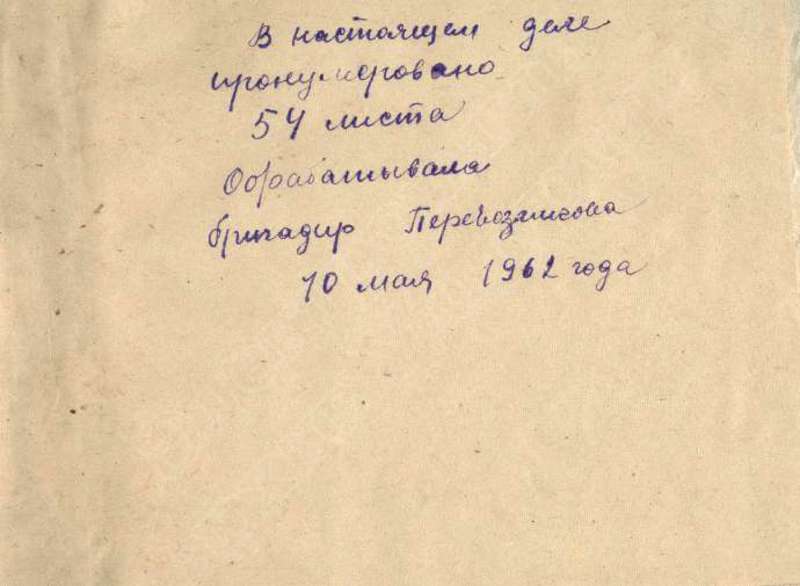 В настоящем деле
пронумеровано
54 листа
Обрабатывала
бригадир
10 мая 1962 года